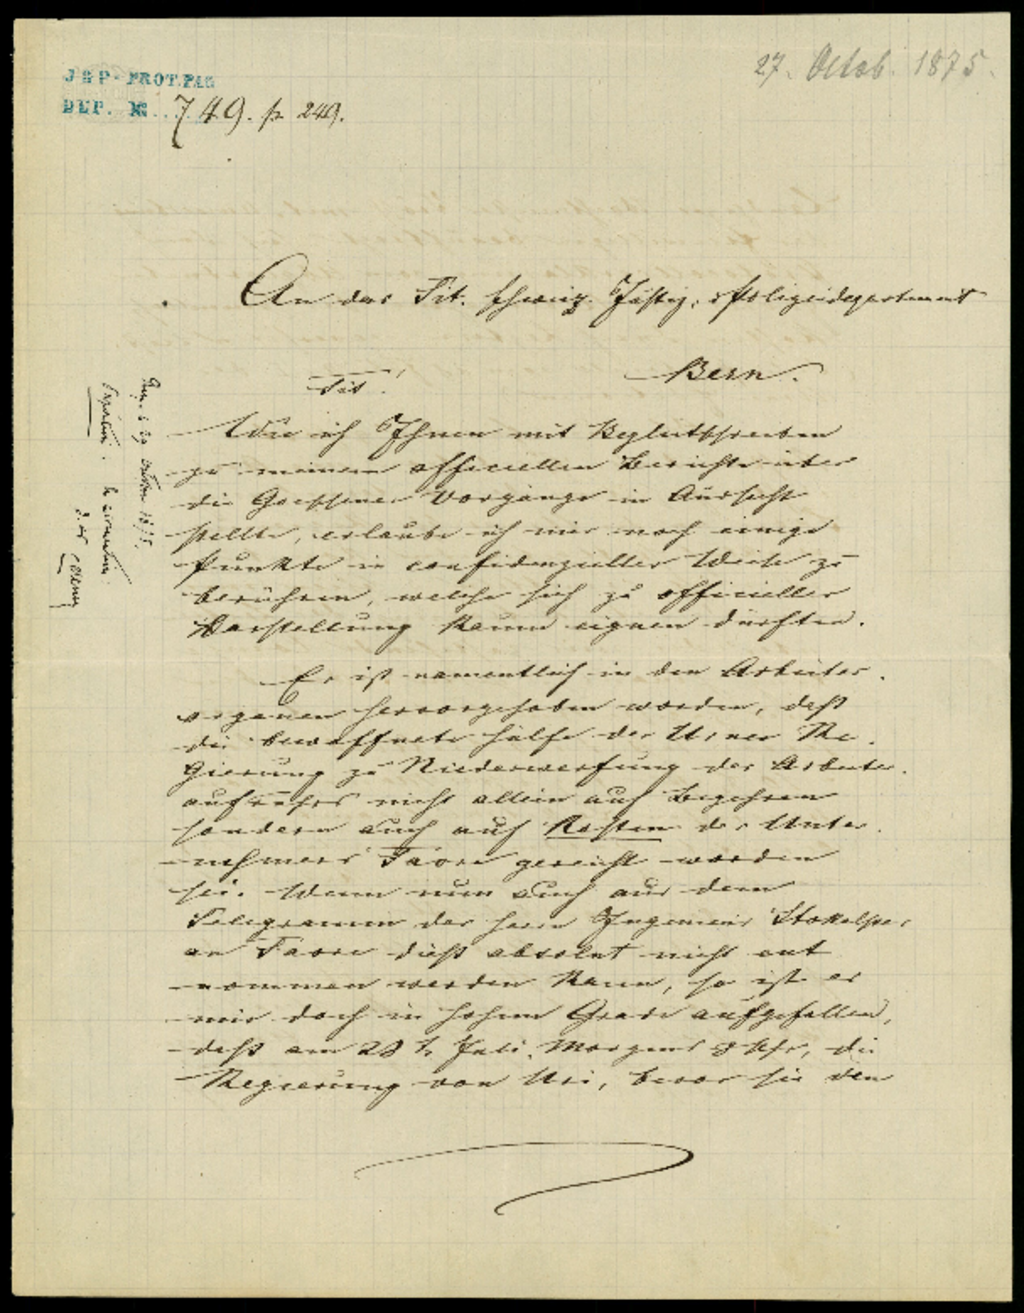 27. Octob. 1875.
J & P- PROT. PAG
DEP. No. 749. p. 249.
An das Tit. schweiz. Justiz- & Polizeidepartement
Bern.
Tit!
Wie ich Ihnen mit Begleitschreiben
zu meinem officiellen Berichte über
die Goeschener Vorgänge in Aussicht
stellte, erlaube ich mir noch einige
Punkte in confidenzieller Weise zu
berühren, welche sich zu officieller
Darstellung kaum eignen dürften.
Es ist namentlich in den Arbeiter-
organen hervorgehoben worden, daß
die bewaffnete Hülfe der Urner Re-
gierung zu Niederwerfung des Arbeiter-
aufruhrs nicht allein auf Begehren
sondern auch auf Kosten des Unter-
nehmers Favre gereicht worden
sei. Wenn nun auch aus dem
Telegramm des Herrn Ingenieur Stokalper
an Favre dieß absolut nicht ent-
nommen werden kann, so ist es
mir doch in hohem Grade aufgefallen,
daß am 28 t. Juli, Morgens 8 Uhr, die
Regierung von Uri, bevor sie den